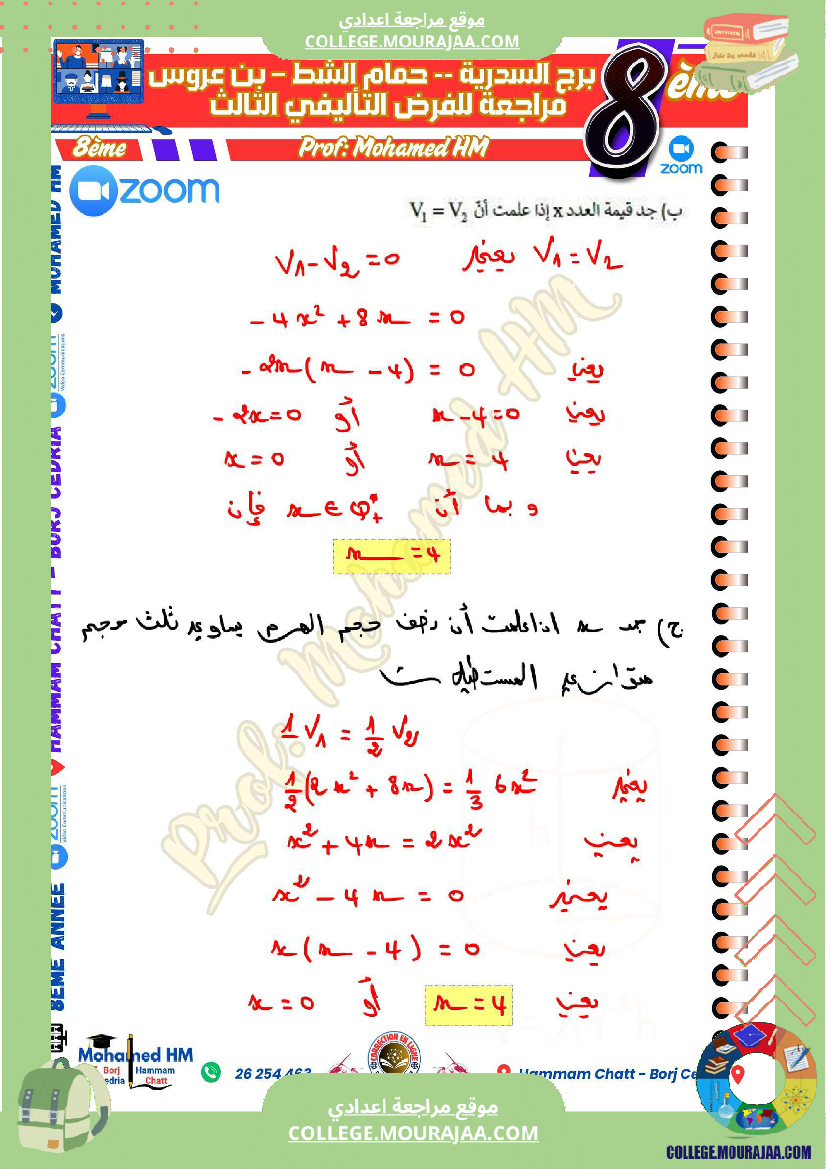 موقع مراجعة اعدادي
COLLEGE.MOURAJAA.COM
برج السدرية -- حمام الشط - بن عروس
مراجعة للفرض التأليفي الثالث
8ème
8ème
Prof: Mohamed HM
zoom
zoom
ب) جد قيمة العدد x إذا علمت أنّ V₁ = V₂
V₁ = V₂ يعني V₁ - V₂ = 0
- 4x² + 8x = 0
يعني - 2x(x - 4) = 0
يعني x - 4 = 0 أو - 2x = 0
يعني x = 4 أو x = 0
و بما أن x ∈ Q*₊ فإن
x = 4
ج) جد x اذا علمت أن نصف حجم الهرم يساوي ثلث حجم
متوازي المستطيلات
1 V₁ = 1/2 V₂
يعني 1/2 (2x² + 8x) = 1/3 6x²
يعني x² + 4x = 2x²
يعني x² - 4x = 0
يعني x(x - 4) = 0
يعني x = 4 أو x = 0
Prof: Mohamed HM
MOHAMED HM
zoom
HAMMAM CHATT - BORJ CEDRIA
zoom
8EME ANNEE
Mohamed HM
Borj Hammam
Chatt
CORRECTION EN LIGNE
26 254 463
Hammam Chatt - Borj Ce
موقع مراجعة اعدادي
COLLEGE.MOURAJAA.COM
COLLEGE.MOURAJAA.COM